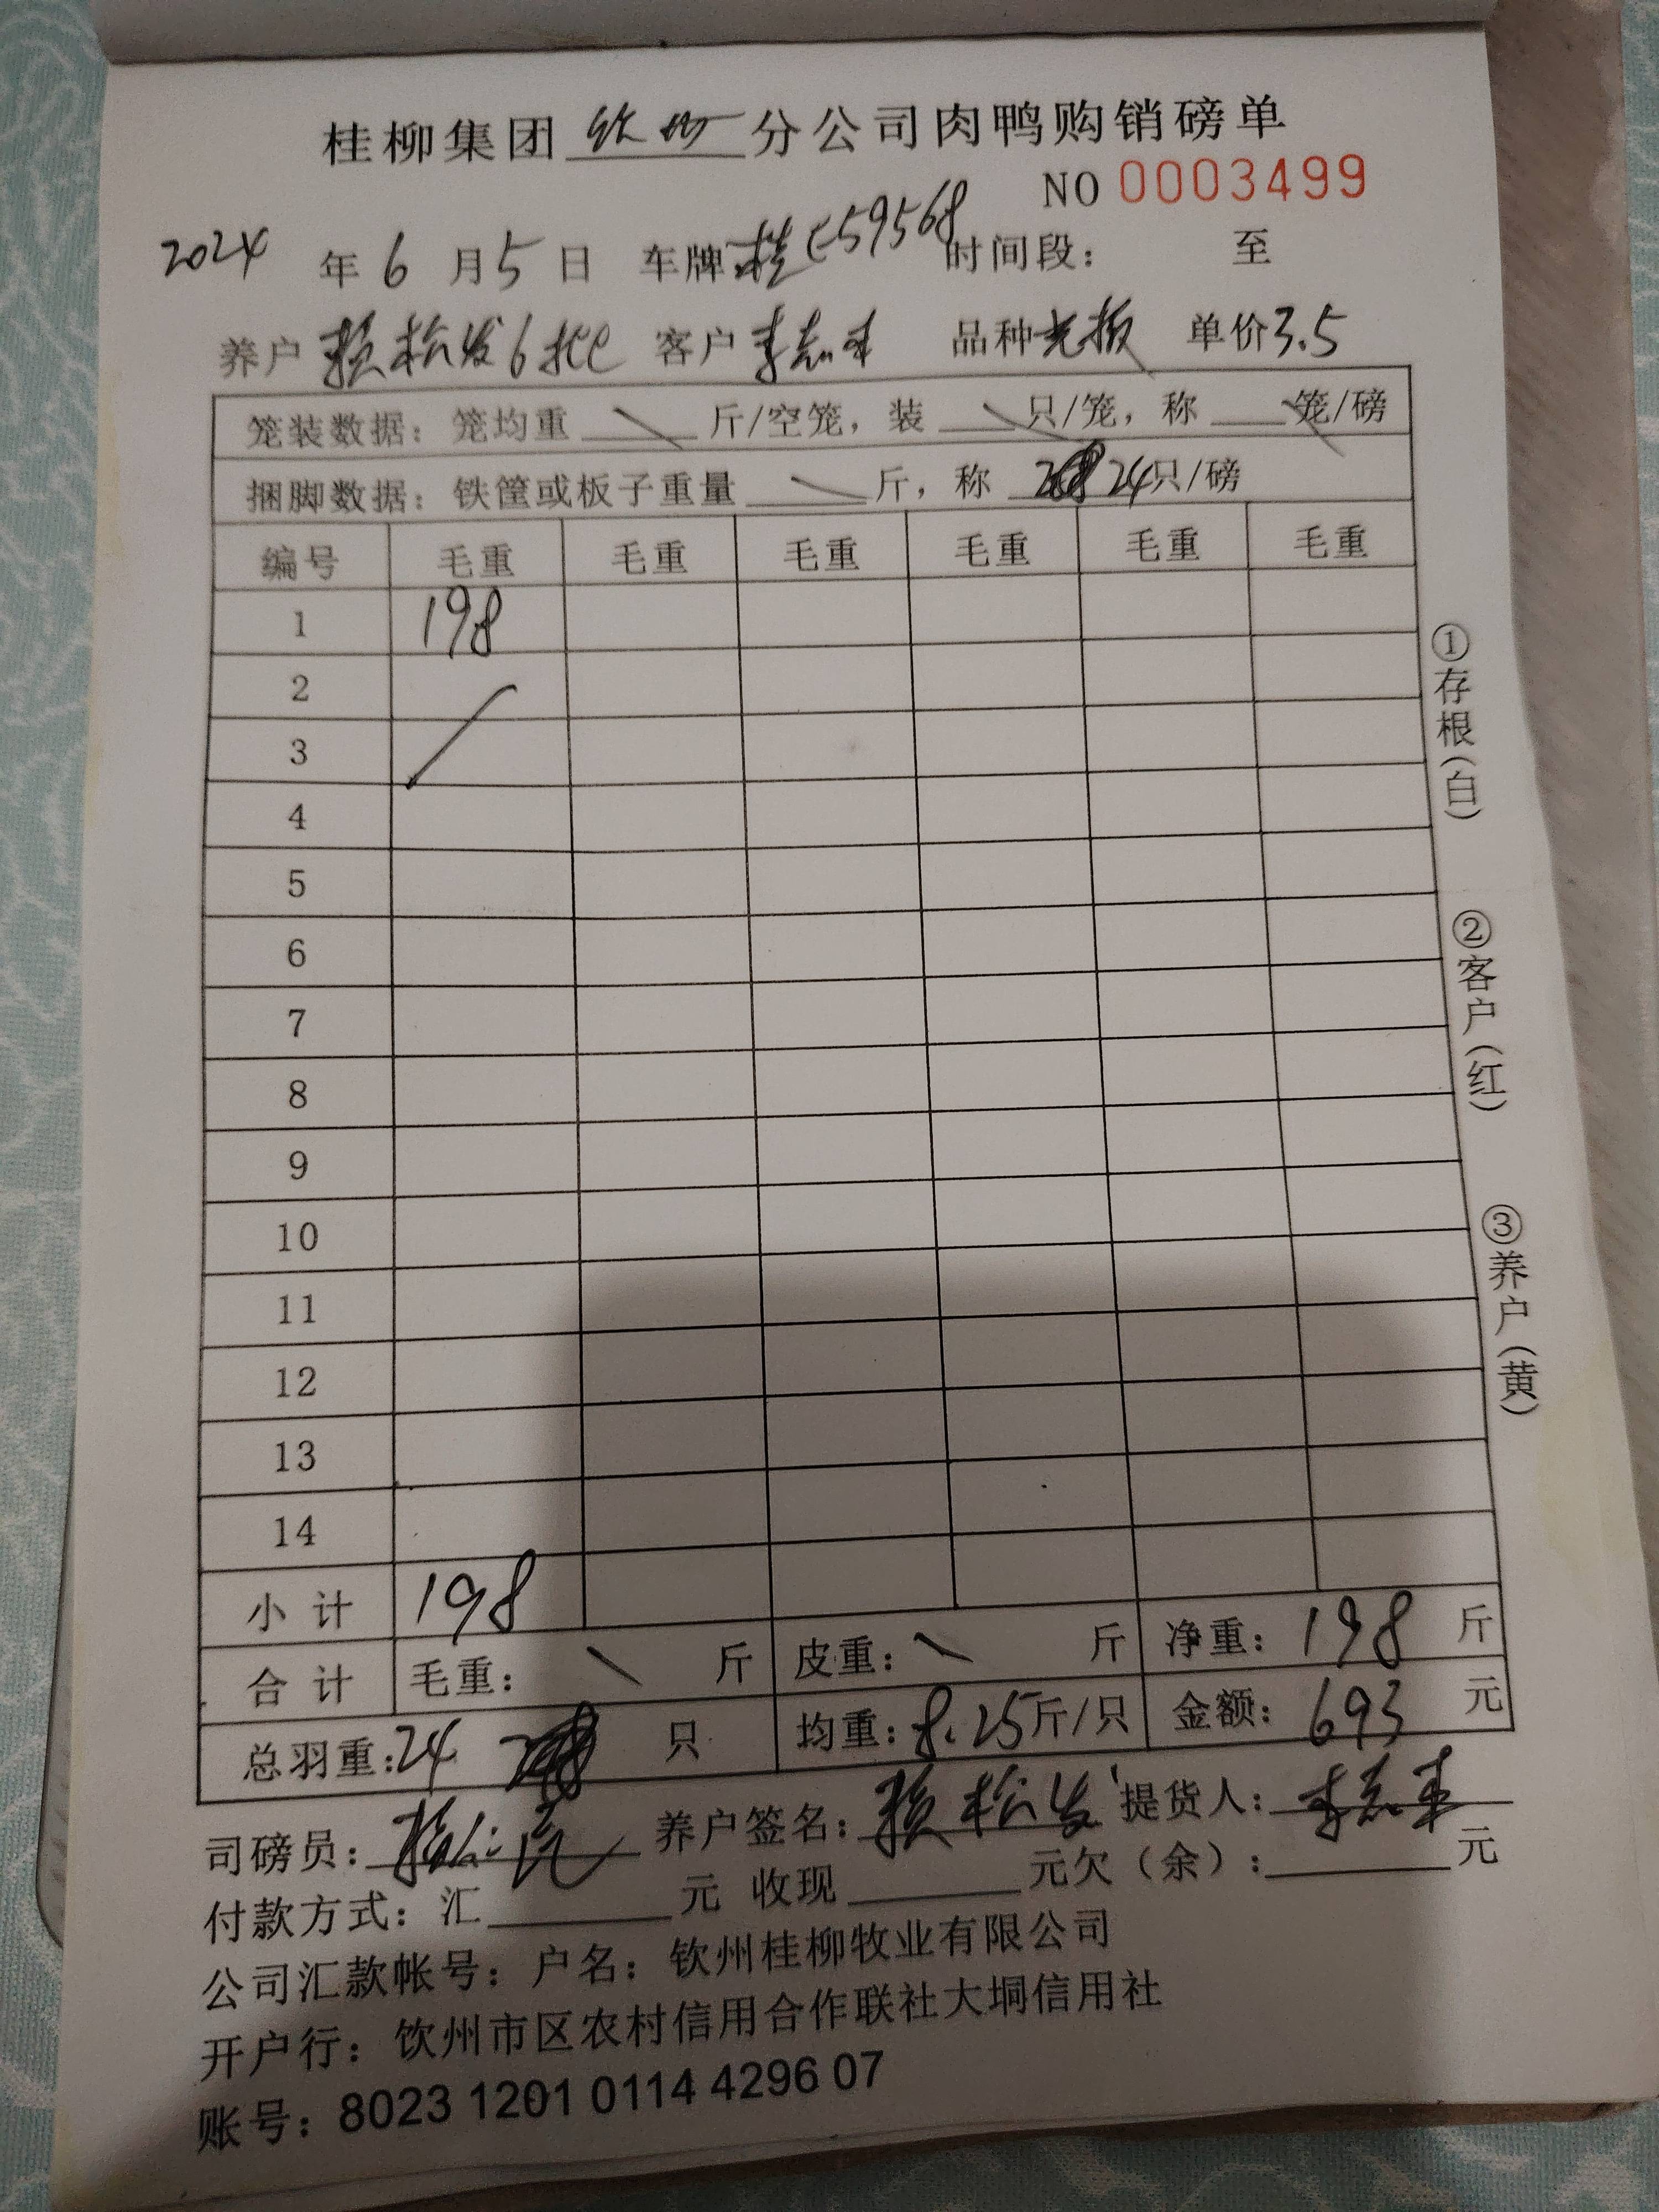 桂柳集团 钦州 分公司肉鸭购销磅单
NO 0003499
2024 年 6 月 5 日 车牌 桂E59568 时间段： 至
养户 赖松发6批 客户 李志 品种 光板 单价 3.5
笼装数据：笼均重 斤/空笼，装 只/笼，称 笼/磅
捆脚数据：铁筐或板子重量 斤，称 24只/磅
编号 毛重 毛重 毛重 毛重 毛重 毛重
1 198
2
3
4
5
6
7
8
9
10
11
12
13
14
小计 198
合计 毛重： 斤 皮重： 斤 净重：198 斤
总羽重：24 只 均重：8.25斤/只 金额：693 元
司磅员： 养户签名：赖松发 提货人：李志
付款方式：汇 元 收现 元欠（余）： 元
公司汇款帐号：户名：钦州桂柳牧业有限公司
开户行：钦州市区农村信用合作联社大垌信用社
账号：8023 1201 0114 4296 07
①存根(白)
②客户(红)
③养户(黄)